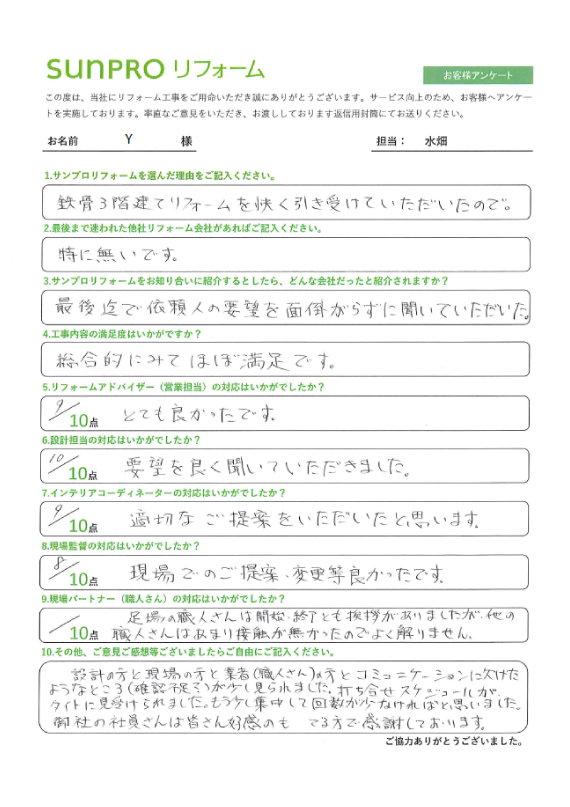 SUNPRO リフォーム
お客様アンケート
この度は、当社にリフォーム工事をご用命いただき誠にありがとうございます。サービス向上のため、お客様へアンケー
トを実施しております。率直なご意見をいただき、お渡ししております返信用封筒にてお送りください。
お名前 Y 様 担当： 水畑
1.サンプロリフォームを選んだ理由をご記入ください。
鉄骨3階建てリフォームを快く引き受けていただいたので。
2.最後まで迷われた他社リフォーム会社があればご記入ください。
特に無いです。
3.サンプロリフォームをお知り合いに紹介するとしたら、どんな会社だったと紹介されますか？
最後迄で依頼人の要望を面倒がらずに聞いていただいた。
4.工事内容の満足度はいかがですか？
総合的にみてほぼ満足です。
5.リフォームアドバイザー（営業担当）の対応はいかがでしたか？
9/10点 とても良かったです。
6.設計担当の対応はいかがでしたか？
10/10点 要望を良く聞いていただきました。
7.インテリアコーディネーターの対応はいかがでしたか？
9/10点 適切なご提案をいただいたと思います。
8.現場監督の対応はいかがでしたか？
8/10点 現場でのご提案、変更等良かったです。
9.現場パートナー（職人さん）の対応はいかがでしたか？
足場の職人さんは開始・終了とも挨拶がありましたが、他の
/10点 職人さんはあまり接触が無かったのでよく解りません。
10.その他、ご意見ご感想等ございましたらご自由にご記入ください。
設計の方と現場の方と業者(職人さん)の方とコミュニケーションに欠けた
ようなところ(確認不足？)が少し見られました。打ち合せスケジュールが、
タイトに見受けられました。もう少し集中して回数が少なければと思いました。
御社の社員さんは皆さん好感のも てる方で感謝しております。
ご協力ありがとうございました。